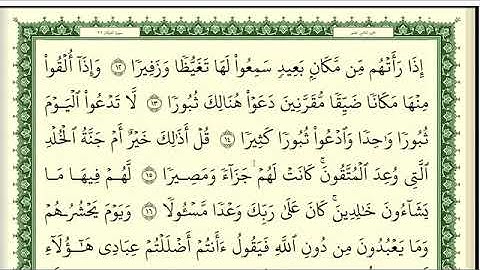 الجزء الثامن عشر
سورة الفرقان
إِذَا رَأَتْهُم مِّن مَّكَانٍ بَعِيدٍ سَمِعُوا۟ لَهَا تَغَيُّظًا وَزَفِيرًا ١٢ وَإِذَآ أُلْقُوا۟
مِنْهَا مَكَانًا ضَيِّقًا مُّقَرَّنِينَ دَعَوْا۟ هُنَالِكَ ثُبُورًا ١٣ لَّا تَدْعُوا۟ ٱلْيَوْمَ
ثُبُورًا وَٰحِدًا وَٱدْعُوا۟ ثُبُورًا كَثِيرًا ١٤ قُلْ أَذَٰلِكَ خَيْرٌ أَمْ جَنَّةُ ٱلْخُلْدِ
ٱلَّتِى وُعِدَ ٱلْمُتَّقُونَ ۚ كَانَتْ لَهُمْ جَزَآءً وَمَصِيرًا ١٥ لَّهُمْ فِيهَا مَا
يَشَآءُونَ خَٰلِدِينَ ۚ كَانَ عَلَىٰ رَبِّكَ وَعْدًا مَّسْـُٔولًا ١٦ وَيَوْمَ يَحْشُرُهُمْ
وَمَا يَعْبُدُونَ مِن دُونِ ٱللَّهِ فَيَقُولُ ءَأَنتُمْ أَضْلَلْتُمْ عِبَادِى هَٰٓؤُلَآءِ